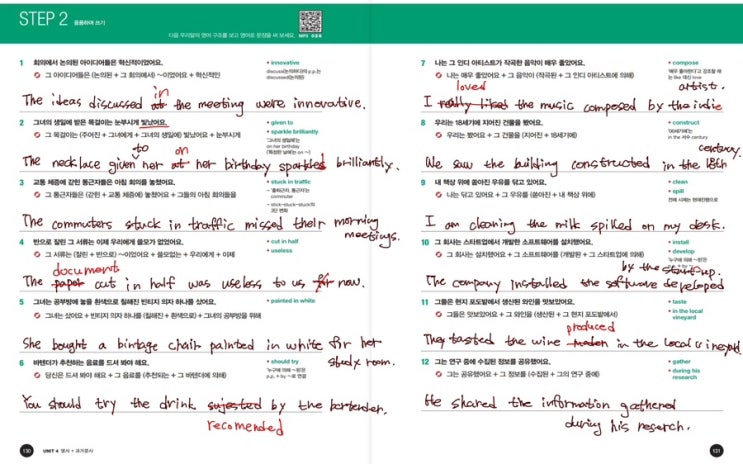 STEP 2 응용하여 쓰기
다음 우리말의 영어 구조를 보고 영어로 문장을 써 보세요.
1 회의에서 논의된 아이디어들은 혁신적이었어요.
그 아이디어들은 (논의된 + 그 회의에서) ~이었어요 + 혁신적인
• innovative
discuss(논의하다)의 p.p.는 discussed(논의된)
in
The ideas discussed at the meeting were innovative.
2 그녀의 생일에 받은 목걸이는 눈부시게 빛났어요.
그 목걸이는 (주어진 + 그녀에게 + 그녀의 생일에) 빛났어요 + 눈부시게
• given to
• sparkle brilliantly
'그녀의 생일에'는
on her birthday
to on
The necklace given her at her birthday sparkled brilliantly.
3 교통 체증에 갇힌 통근자들은 아침 회의를 놓쳤어요.
그 통근자들은 (갇힌 + 교통 체증에) 놓쳤어요 + 그들의 아침 회의들을
• stuck in traffic
commuter
stick-stuck-stuck의
3단 변화
The commuters stuck in traffic missed their morning
meetings.
4 반으로 잘린 그 서류는 이제 우리에게 쓸모가 없었어요.
그 서류는 (잘린 + 반으로) ~이었어요 + 쓸모없는 + 우리에게 + 이제
• cut in half
• useless
document
The paper cut in half was useless to us for now.
5 그녀는 공부방에 놓을 흰색으로 칠해진 빈티지 의자 하나를 샀어요.
그녀는 샀어요 + 빈티지 의자 하나를 (칠해진 + 흰색으로) + 그녀의 공부방을 위해
• painted in white
She bought a bintage chair painted in white for her
study room.
6 바텐더가 추천하는 음료를 드셔 봐야 해요.
당신은 드셔 봐야 해요 + 그 음료를 (추천되는 + 그 바텐더에 의해)
• should try
'누구에 의해 ~된'은
p.p. + by ~로 연결
You should try the drink sujested by the bartender.
recomended
130 UNIT 4 명사 + 과거분사
7 나는 그 인디 아티스트가 작곡한 음악이 매우 좋았어요.
나는 매우 좋았어요 + 그 음악이 (작곡된 + 그 인디 아티스트에 의해)
• compose
loved
artist.
I really liked the music composed by the indie
8 우리는 18세기에 지어진 건물을 봤어요.
우리는 봤어요 + 그 건물을 (지어진 + 18세기에)
• construct
'00세기에'는
in the 서수 century
century.
We saw the building constructed in the 18th
9 내 책상 위에 쏟아진 우유를 닦고 있어요.
나는 닦고 있어요 + 그 우유를 (쏟아진 + 내 책상 위에)
• clean
• spill
I am cleaning the milk spilked on my desk.
10 그 회사는 스타트업에서 개발된 소프트웨어를 설치했어요.
그 회사는 설치했어요 + 그 소프트웨어를 (개발된 + 그 스타트업에 의해)
• install
• develop
by the startup.
The company installed the software developed
11 그들은 현지 포도밭에서 생산된 와인을 맛보았어요.
그들은 맛보았어요 + 그 와인을 (생산된 + 그 현지 포도밭에서)
• taste
• in the local vineyard
produced
They tasted the wine maden in the local vineyard.
12 그는 연구 중에 수집된 정보를 공유했어요.
그는 공유했어요 + 그 정보를 (수집된 + 그의 연구 중에)
• gather
• during his research
He shared the information gathered
during his reserch.
131